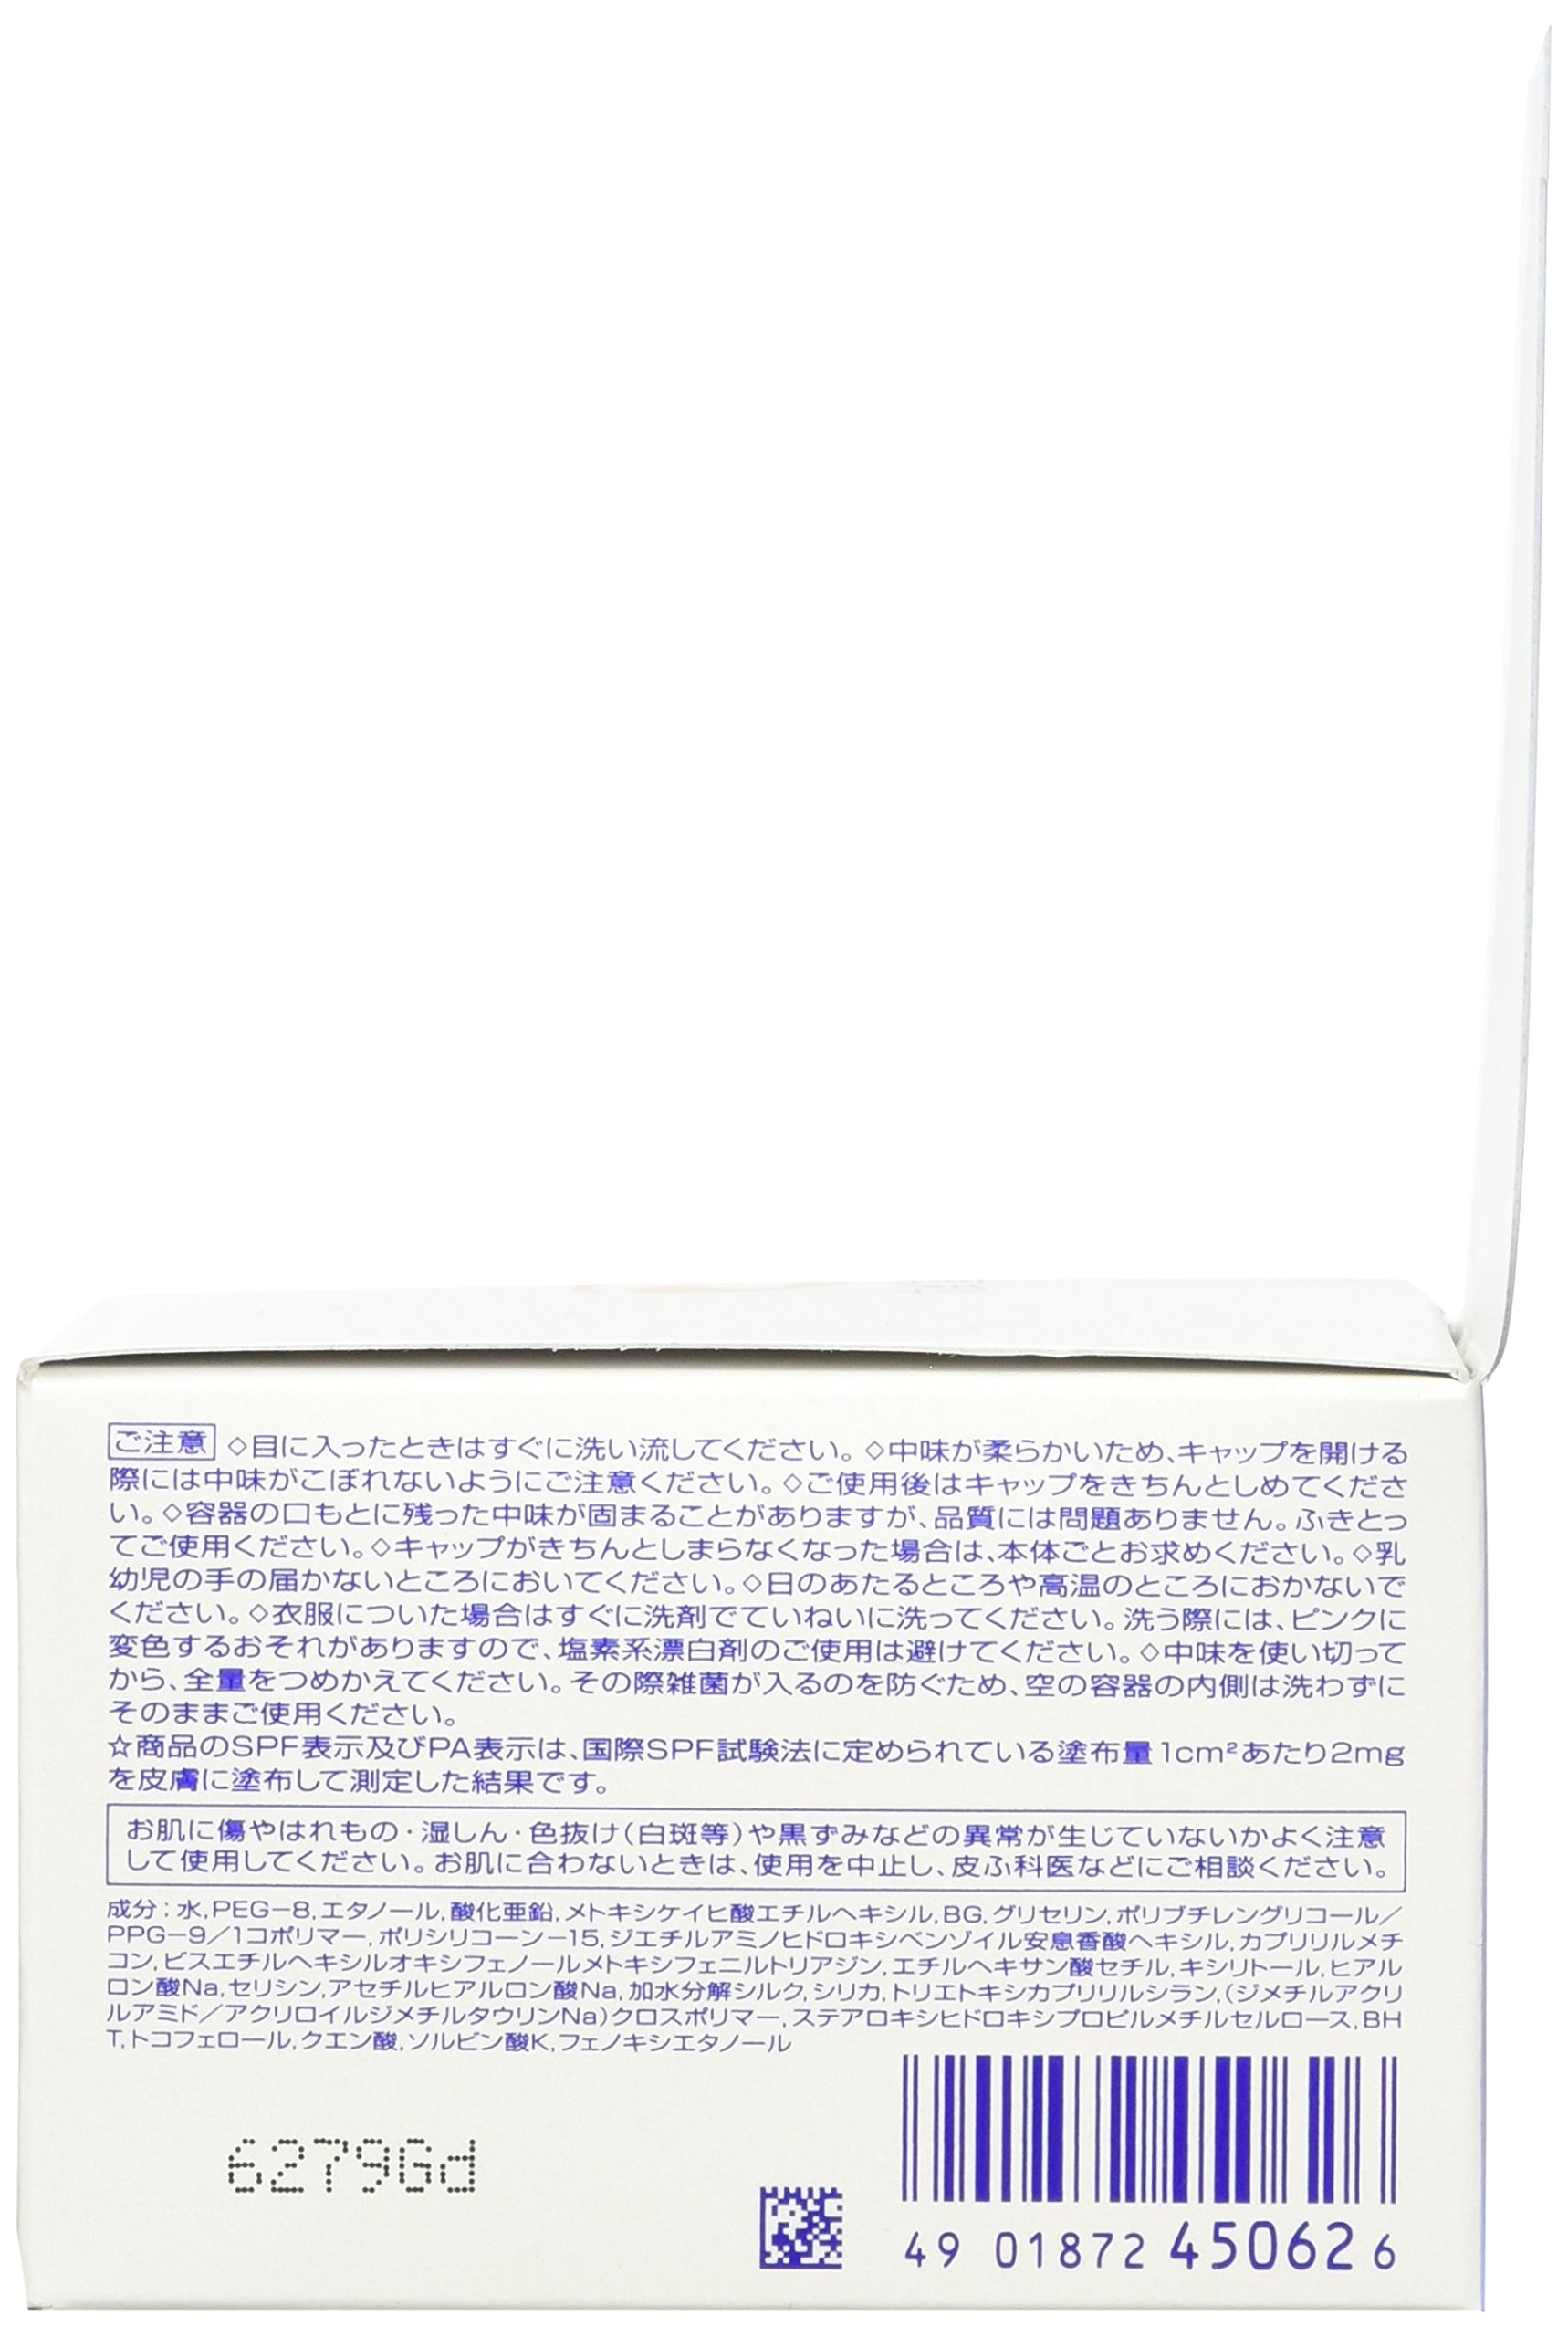 ご注意 ◇目に入ったときはすぐに洗い流してください。◇中味が柔らかいため、キャップを開ける
際には中味がこぼれないようにご注意ください。◇ご使用後はキャップをきちんとしめてくださ
い。◇容器の口もとに残った中味が固まることがありますが、品質には問題ありません。ふきとっ
てご使用ください。◇キャップがきちんとしまらなくなった場合は、本体ごとお求めください。◇乳
幼児の手の届かないところにおいてください。◇日のあたるところや高温のところにおかないで
ください。◇衣服についた場合はすぐに洗剤でていねいに洗ってください。洗う際には、ピンクに
変色するおそれがありますので、塩素系漂白剤のご使用は避けてください。◇中味を使い切って
から、全量をつめかえてください。その際雑菌が入るのを防ぐため、空の容器の内側は洗わずに
そのままご使用ください。
☆商品のSPF表示及びPA表示は、国際SPF試験法に定められている塗布量1cm²あたり2mg
を皮膚に塗布して測定した結果です。
お肌に傷やはれもの・湿しん・色抜け(白斑等)や黒ずみなどの異常が生じていないかよく注意
して使用してください。お肌に合わないときは、使用を中止し、皮ふ科医などにご相談ください。
成分：水,PEG-8,エタノール,酸化亜鉛,メトキシケイヒ酸エチルヘキシル,BG,グリセリン,ポリブチレングリコール/
PPG-9/1コポリマー,ポリシリコーン-15,ジエチルアミノヒドロキシベンゾイル安息香酸ヘキシル,カプリリルメチ
コン,ビスエチルヘキシルオキシフェノールメトキシフェニルトリアジン,エチルヘキサン酸セチル,キシリトール,ヒアル
ロン酸Na,セリシン,アセチルヒアルロン酸Na,加水分解シルク,シリカ,トリエトキシカプリリルシラン,(ジメチルアクリ
ルアミド/アクリロイルジメチルタウリンNa)クロスポリマー,ステアロキシヒドロキシプロピルメチルセルロース,BH
T,トコフェロール,クエン酸,ソルビン酸K,フェノキシエタノール
6279Gd
49 01872 450626